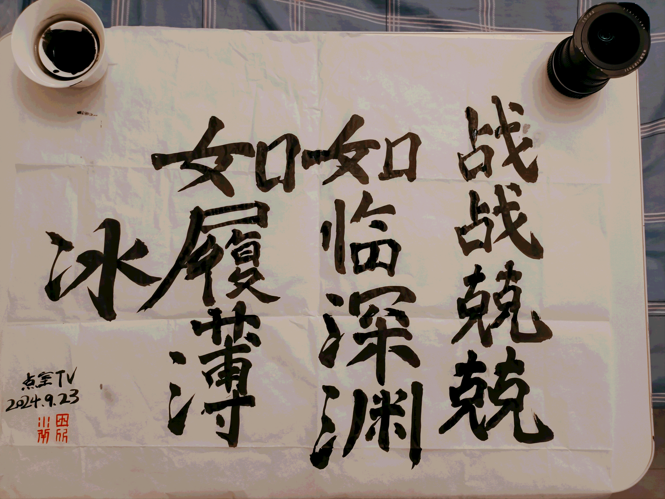 战战兢兢
如临深渊
如履薄
冰
点金TV
2024.9.23